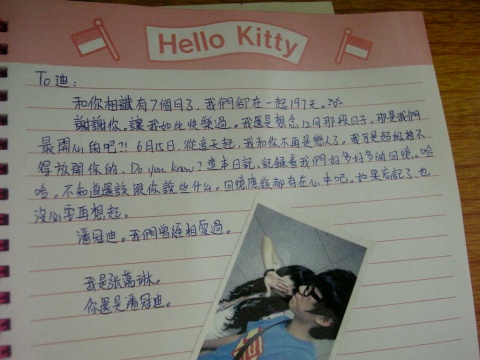 Hello Kitty
To迪:
和你相識有7個月了。我們卻在一起197天。
謝謝你。讓我如此快樂過。我還是想念12月那段日子。那是我們
最開心的吧?! 6月15日。從這天起。我和你不再是戀人了。我可是超級捨不
得放開你的。Do you know? 這本日記。記錄着我們好多好多的回憶。哈
哈。不知道還該跟你說些什么。回憶應該都存在心中吧。如果忘記了。也
沒必要再想起。
潘冠迪。我們曾經相愛過。
我是张萬琳。
你還是潘冠迪。